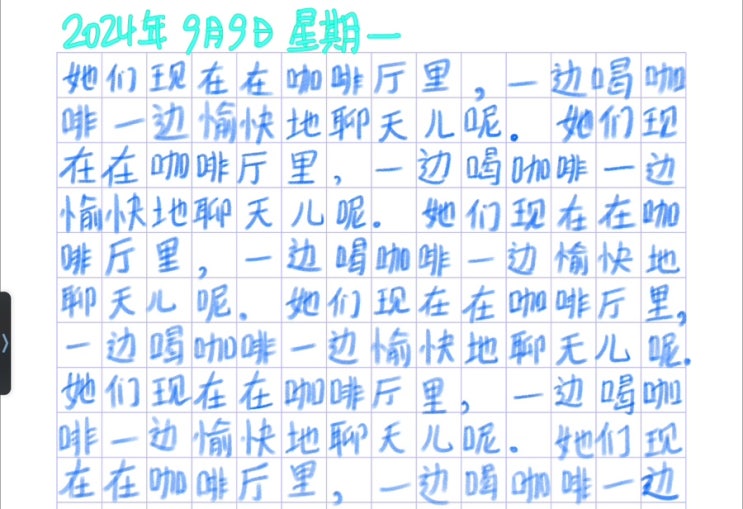 2024年 9月9日 星期一
她们现在在咖啡厅里，一边喝咖
啡一边愉快地聊天儿呢。她们现
在在咖啡厅里，一边喝咖啡一边
愉快地聊天儿呢。她们现在在咖
啡厅里，一边喝咖啡一边愉快地
聊天儿呢。她们现在在咖啡厅里，
一边喝咖啡一边愉快地聊天儿呢。
她们现在在咖啡厅里，一边喝咖
啡一边愉快地聊天儿呢。她们现
在在咖啡厅里，一边喝咖啡一边